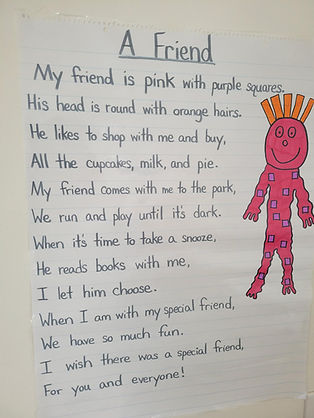 A Friend
My friend is pink with purple squares.
His head is round with orange hairs.
He likes to shop with me and buy,
All the cupcakes, milk, and pie.
My friend comes with me to the park,
We run and play until it's dark.
When it's time to take a snooze,
He reads books with me,
I let him choose.
When I am with my special friend,
We have so much fun.
I wish there was a special friend,
For you and everyone!